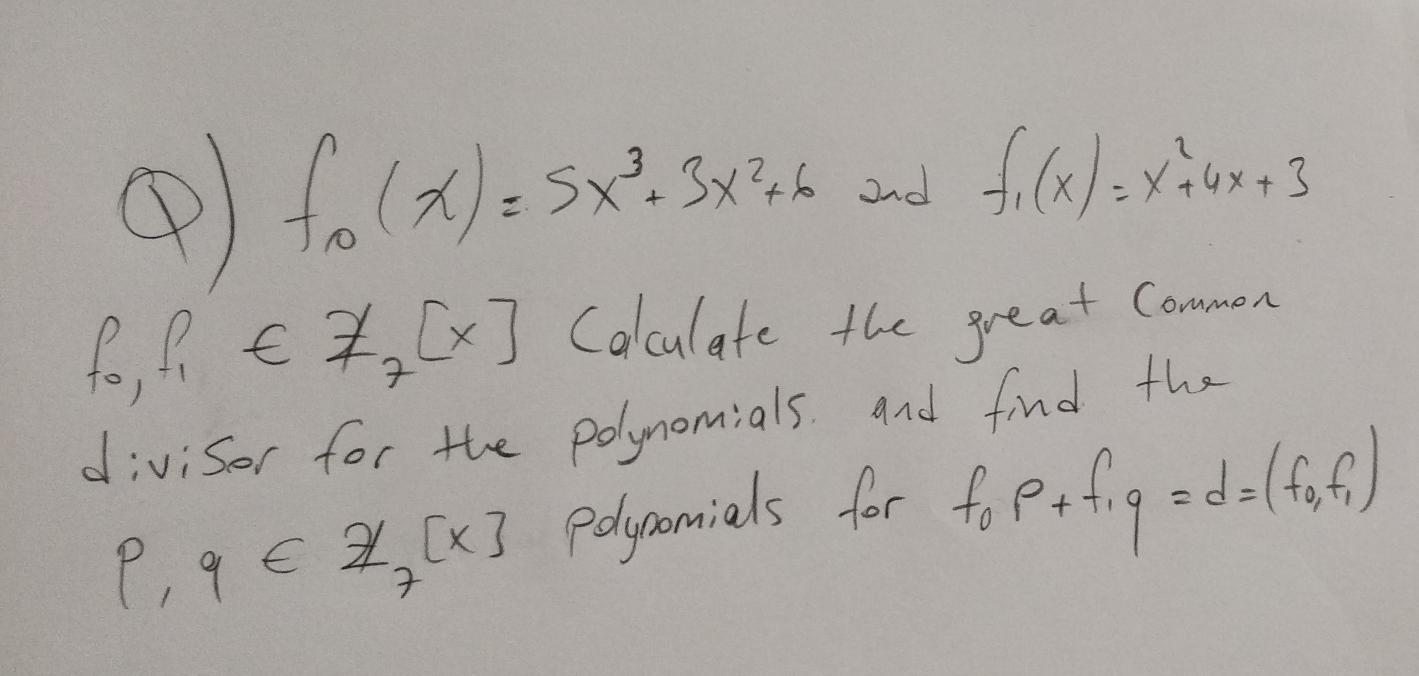 Q) f₀(x) = 5x³ + 3x² + 6 and f₁(x) = x² + 4x + 3
f₀, f₁ ∈ ℤ₇[x] Calculate the great Common
divisor for the polynomials. and find the
P, q ∈ ℤ₇[x] polynomials for f₀ P + f₁q = d = (f₀, f₁)